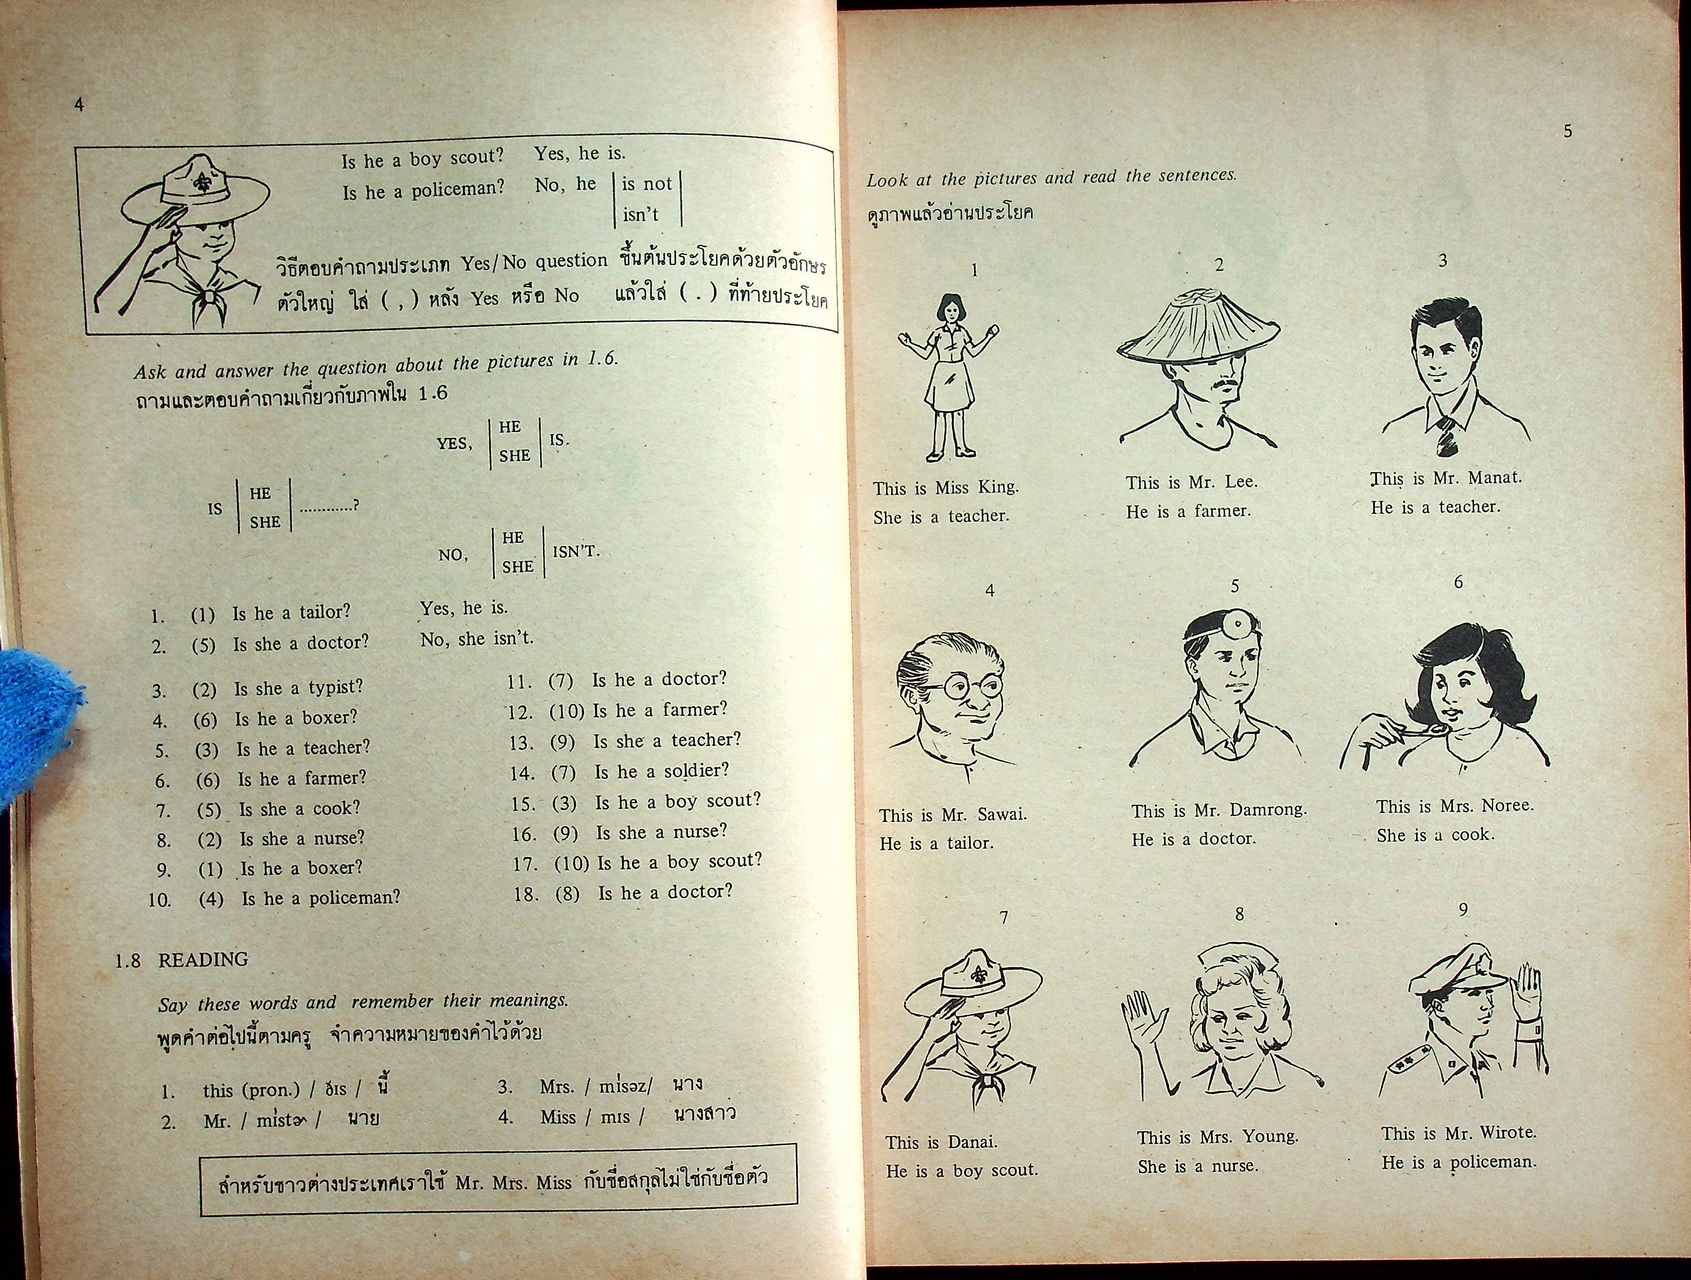 4
Is he a boy scout? Yes, he is.
Is he a policeman? No, he is not
isn't
วิธีตอบคำถามประเภท Yes/No question ขึ้นต้นประโยคด้วยตัวอักษร
ตัวใหญ่ ใส่ ( , ) หลัง Yes หรือ No แล้วใส่ ( . ) ที่ท้ายประโยค
Ask and answer the question about the pictures in 1.6.
ถามและตอบคำถามเกี่ยวกับภาพใน 1.6
YES, HE IS.
SHE
IS HE ............?
SHE
NO, HE ISN'T.
SHE
1. (1) Is he a tailor? Yes, he is.
2. (5) Is she a doctor? No, she isn't.
3. (2) Is she a typist?
4. (6) Is he a boxer?
5. (3) Is he a teacher?
6. (6) Is he a farmer?
7. (5) Is she a cook?
8. (2) Is she a nurse?
9. (1) Is he a boxer?
10. (4) Is he a policeman?
11. (7) Is he a doctor?
12. (10) Is he a farmer?
13. (9) Is she a teacher?
14. (7) Is he a soldier?
15. (3) Is he a boy scout?
16. (9) Is she a nurse?
17. (10) Is he a boy scout?
18. (8) Is he a doctor?
1.8 READING
Say these words and remember their meanings.
พูดคำต่อไปนี้ตามครู จำความหมายของคำไว้ด้วย
1. this (pron.) / ðɪs / นี้
2. Mr. / mɪ́stɚ / นาย
3. Mrs. / mɪ́səz/ นาง
4. Miss / mɪs / นางสาว
สำหรับชาวต่างประเทศเราใช้ Mr. Mrs. Miss กับชื่อสกุลไม่ใช่กับชื่อตัว
5
Look at the pictures and read the sentences.
ดูภาพแล้วอ่านประโยค
1
This is Miss King.
She is a teacher.
2
This is Mr. Lee.
He is a farmer.
3
This is Mr. Manat.
He is a teacher.
4
This is Mr. Sawai.
He is a tailor.
5
This is Mr. Damrong.
He is a doctor.
6
This is Mrs. Noree.
She is a cook.
7
This is Danai.
He is a boy scout.
8
This is Mrs. Young.
She is a nurse.
9
This is Mr. Wirote.
He is a policeman.